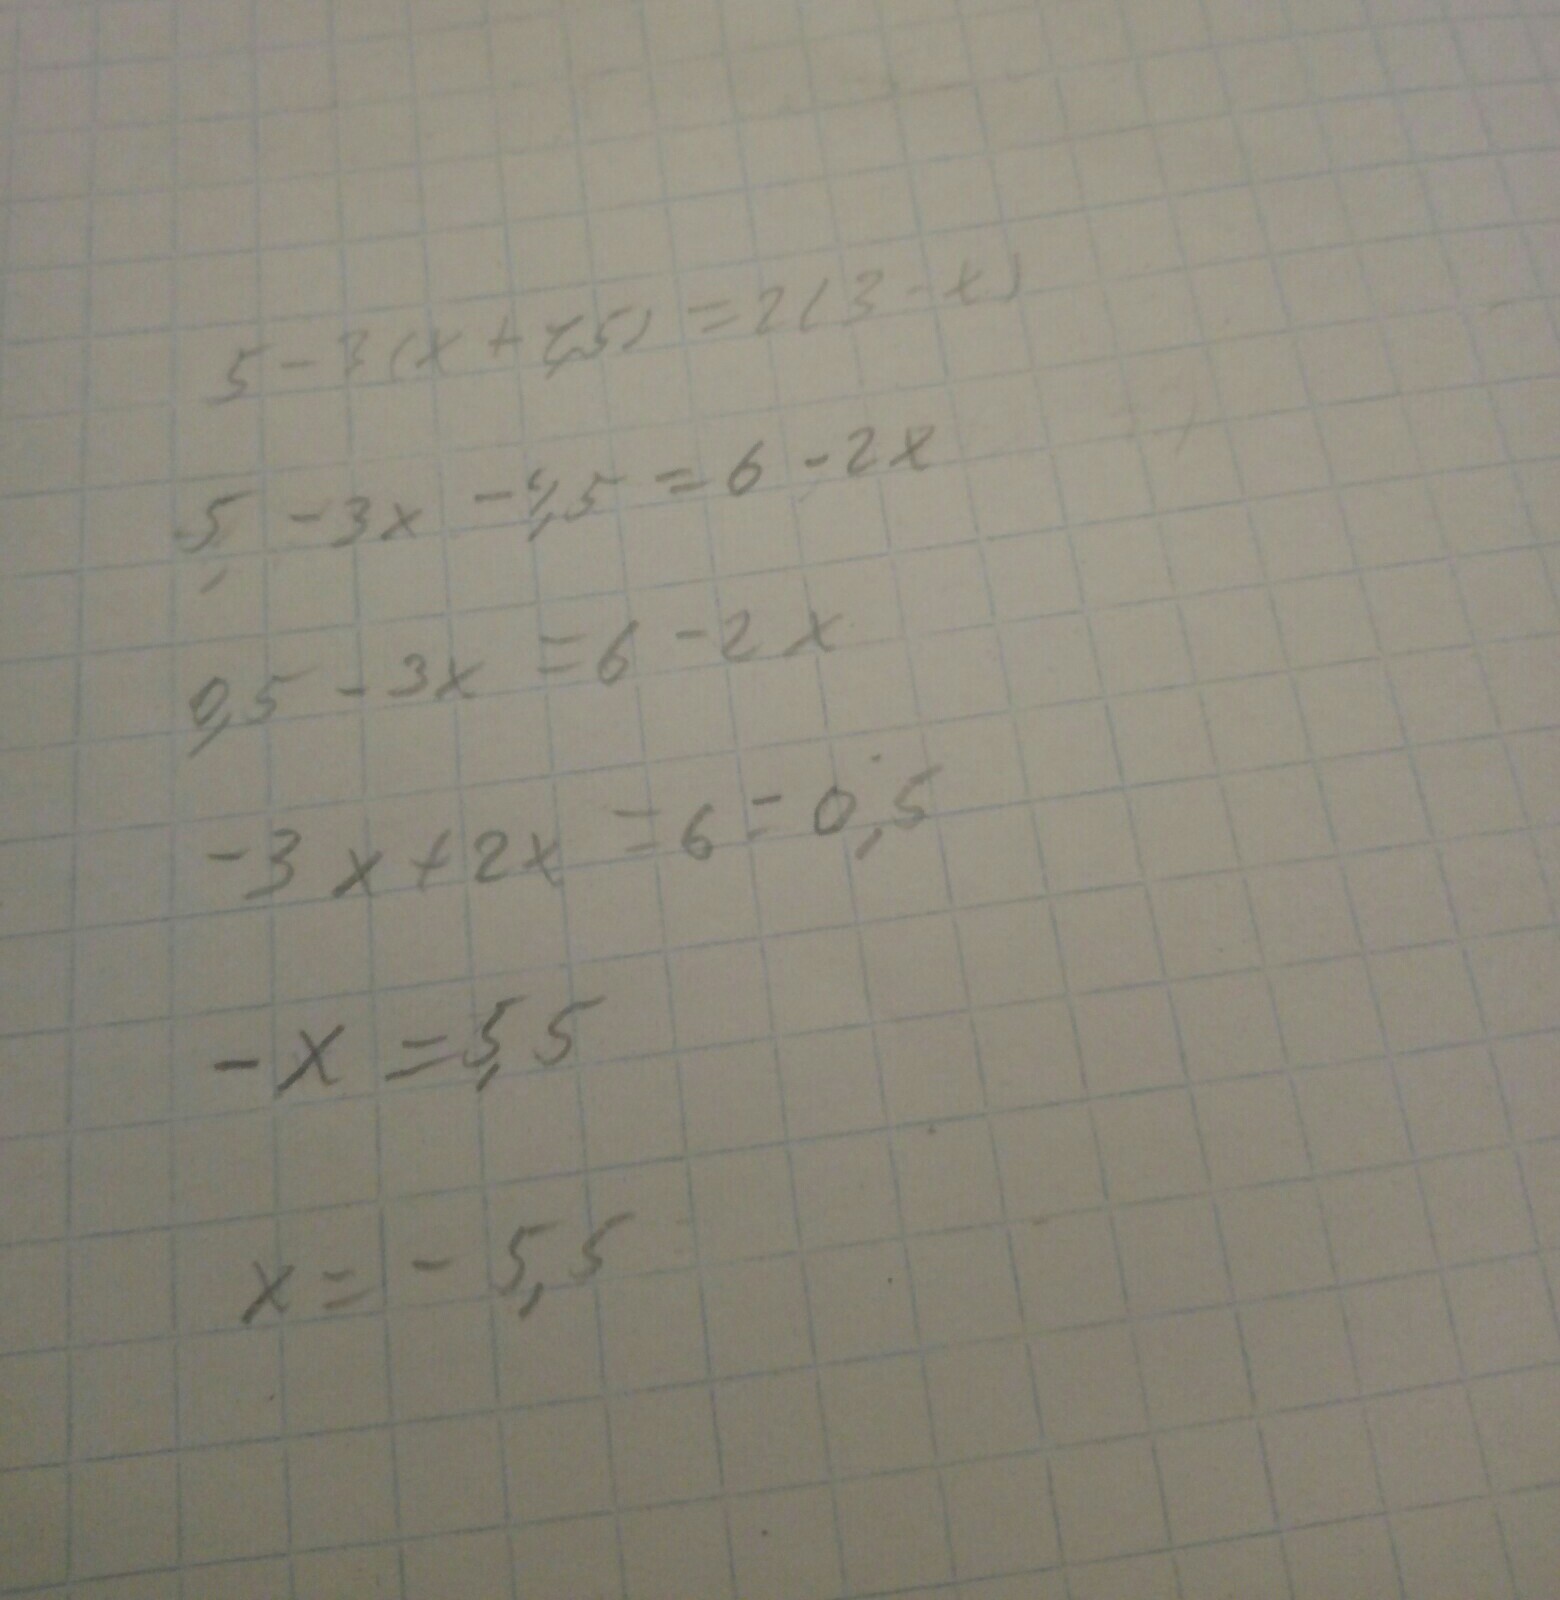 5 - 3(x + 1,5) = 2(3 - x)
5 - 3x - 4,5 = 6 - 2x
0,5 - 3x = 6 - 2x
-3x + 2x = 6 - 0,5
-x = 5,5
x = -5,5